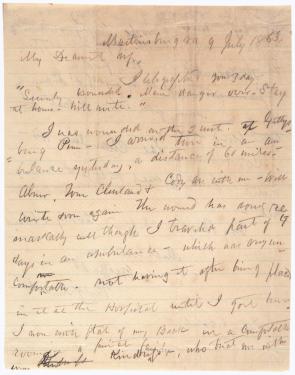 Martinsburg Va 9 July 1863
My Dearest Wife,
I telegraphed you to day
"Severely wounded. Main danger over. Stay
at home. Will write."
I was wounded on the 2 inst. at Gettys-
burg Penn — I arrived here in an am-
bulance yesterday, a distance of 60 miles.
Abner, Wm Cleveland & Cody are with me — Will
write soon again. The wound has done re
markably well though I traveled part of 4
days in an ambulance — which was very un-
comfortable. not having it after being placed
in it at the Hospital until I got here
I am now flat of my Back in a Comfortable
room